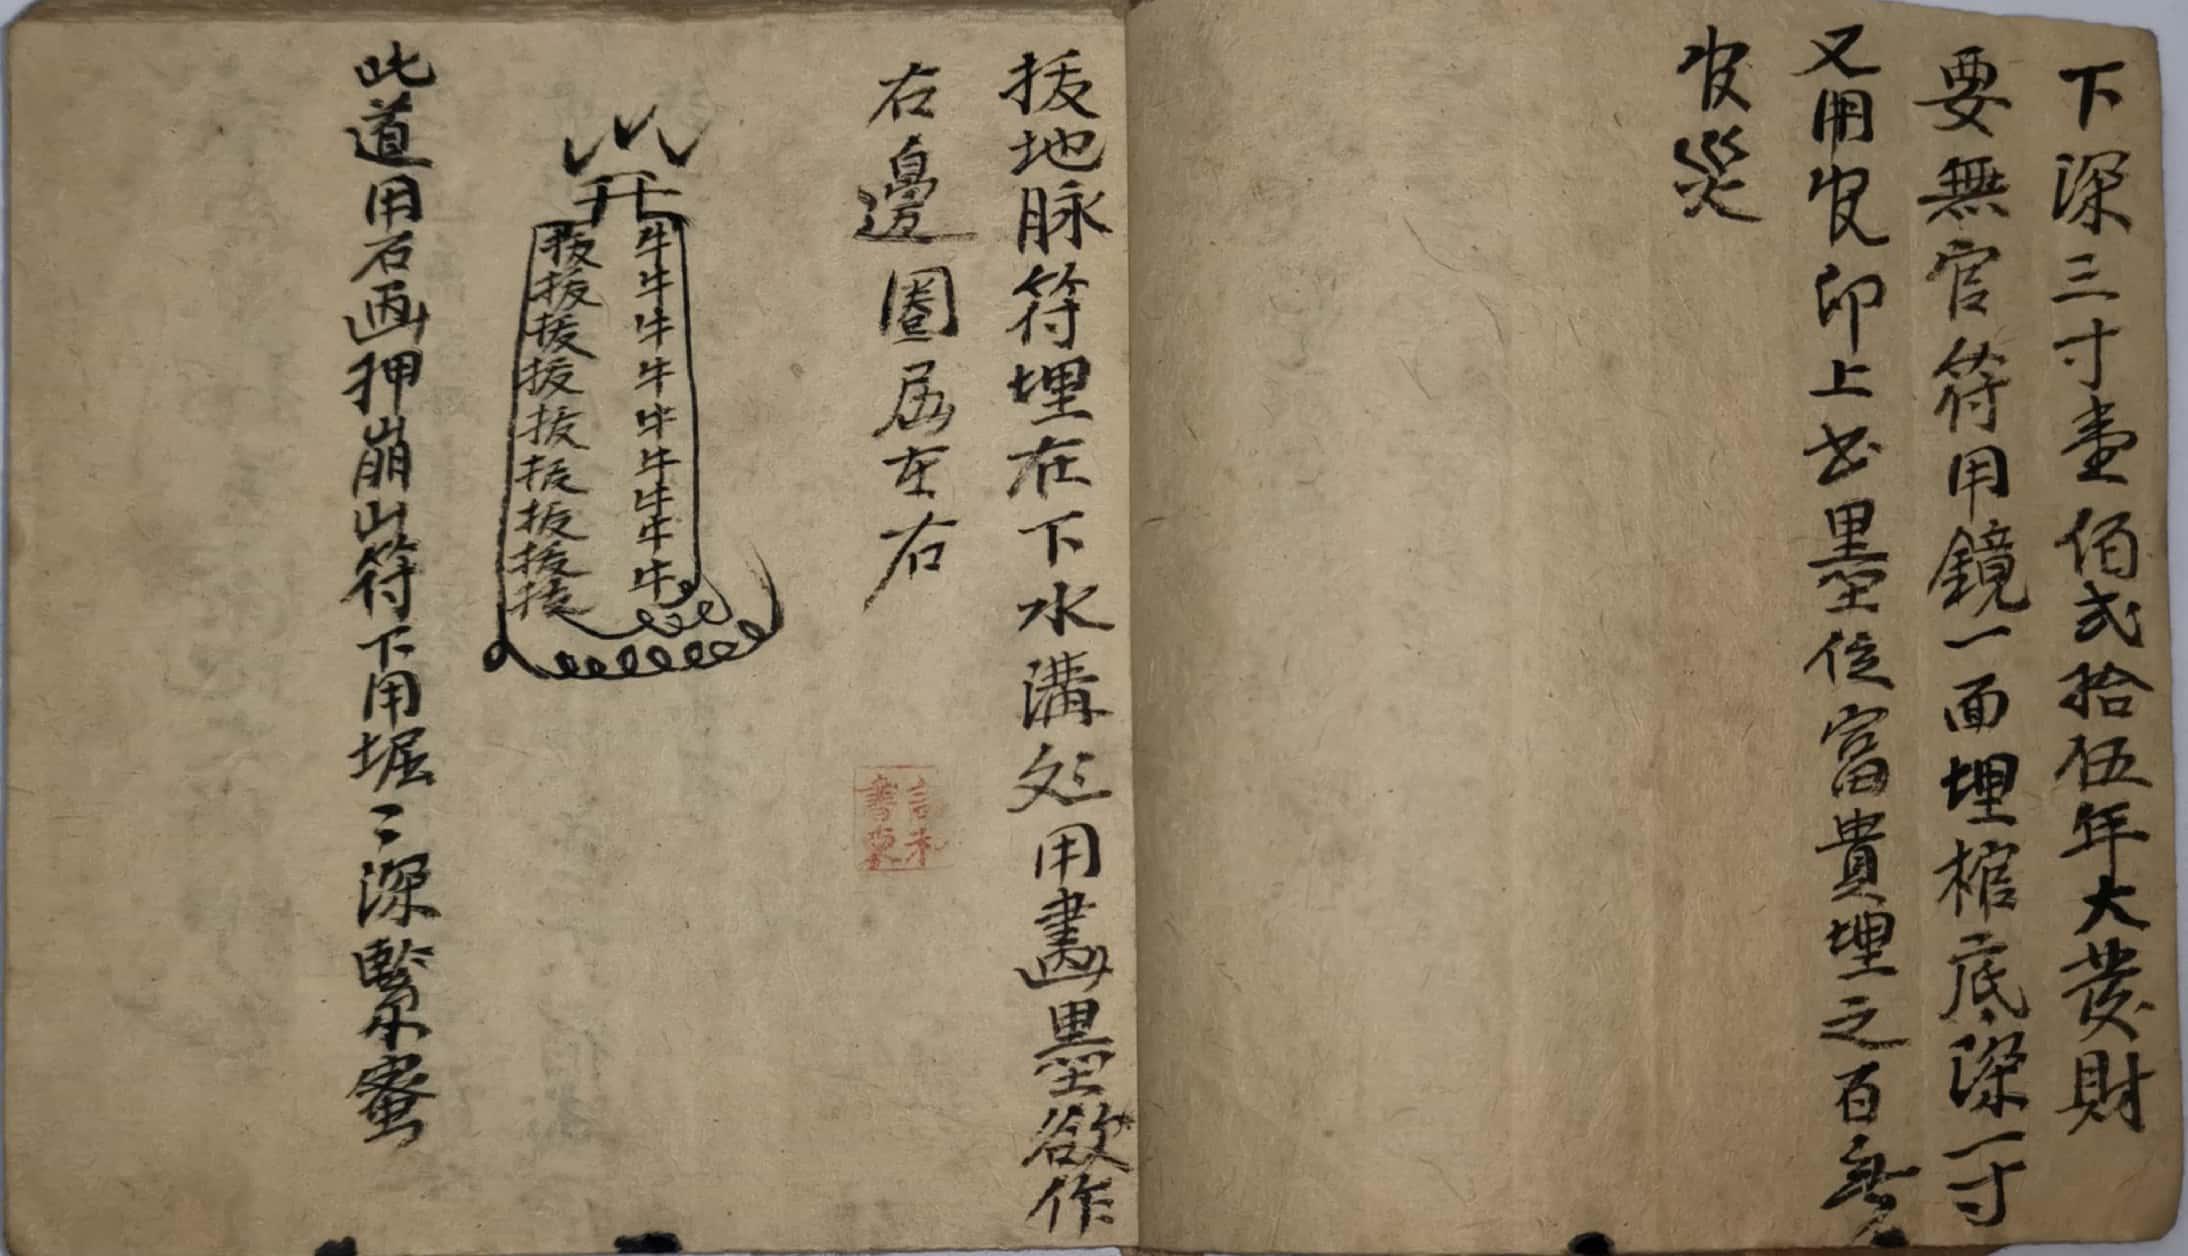 下深三寸壹佰弍拾伍年大发財
要無官符用鏡一面埋棺底深一寸
又用 印上书墨位富貴埋之百無
災
拔地脉符埋在下水溝处用畵墨欲作
右邊圈居在右
牛牛牛牛牛牛牛牛牛
拔拔拔拔拔拔拔拔拔
此道用石画押崩山符下用堀二深緊蜜